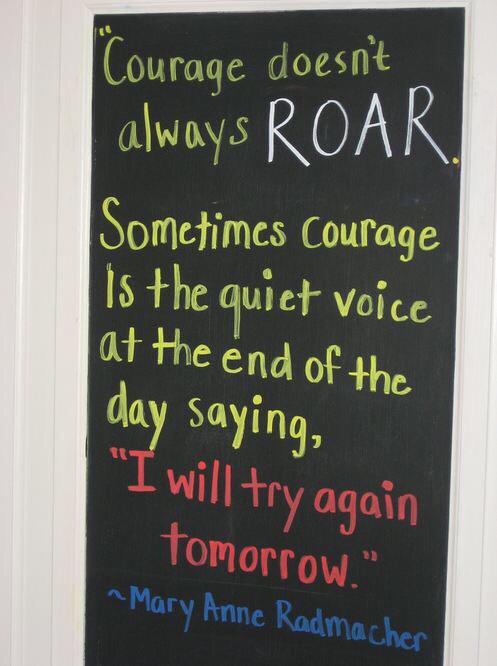 "Courage doesn't
always ROAR.
Sometimes courage
Is the quiet voice
at the end of the
day saying,
"I will try again
tomorrow."
~Mary Anne Radmacher